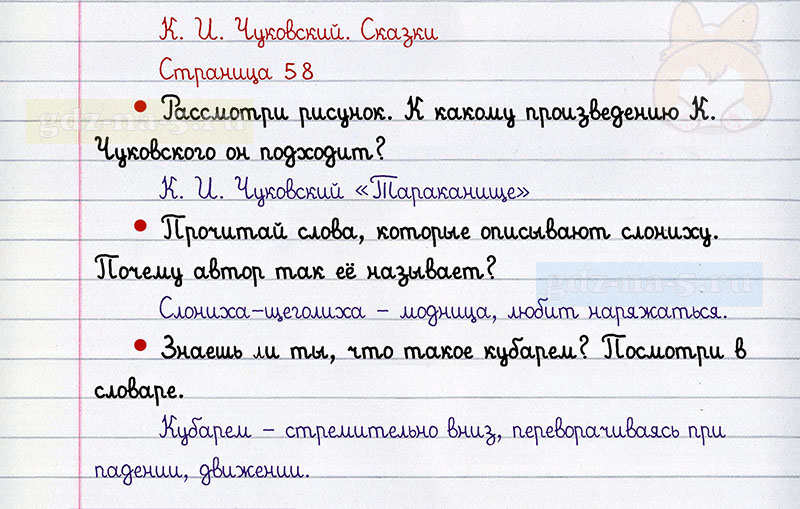 К. И. Чуковский. Сказки
Страница 58
• Рассмотри рисунок. К какому произведению К.
Чуковского он подходит?
К. И. Чуковский «Тараканище»
• Прочитай слова, которые описывают слониху.
Почему автор так её называет?
Слониха-щеголиха – модница, любит наряжаться.
• Знаешь ли ты, что такое кубарем? Посмотри в
словаре.
Кубарем – стремительно вниз, переворачиваясь при
падении, движении.
gdz-na-5.ru
gdz-na-5.ru